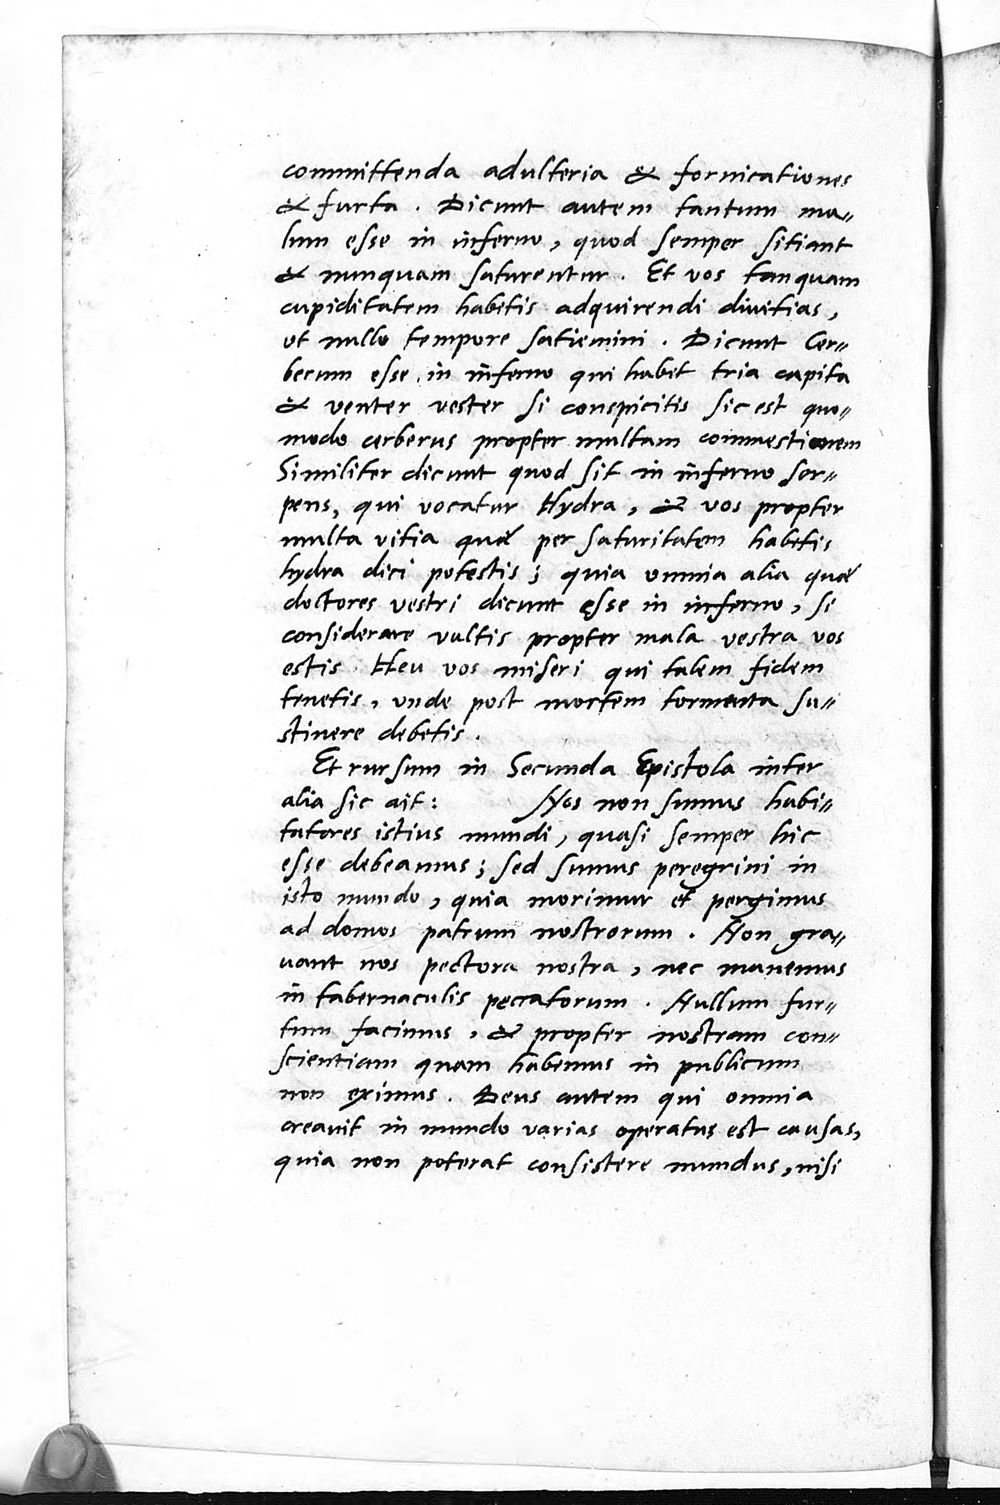 committenda adulteria & fornicationes
& furta . Dicunt autem tantum ma„
lum esse in inferno, quod semper sitiant
& nunquam saturentur . Et vos tanquam
cupiditatem habetis adquirendi divitias,
ut nullo tempore satiemini . Dicunt Cer„
berum esse in inferno qui habet tria capita
& venter vester si conspicitis sic est quo„
modo cerberus propter multam commestionem
Similiter dicunt quod sit in inferno ser„
pens, qui vocatur Hydra, & vos propter
multa vitia quæ per saturitatem habetis
hydra dici potestis; quia omnia alia quæ
doctores vestri dicunt esse in inferno, si
considerare vultis propter mala vestra vos
estis . Heu vos miseri qui talem fidem
tenetis, unde post mortem tormenta su„
stinere debetis .
Et rursum in Secunda Epistola inter
alia sic ait : Nos non sumus habi„
tatores istius mundi, quasi semper hic
esse debeamus; sed sumus peregrini in
isto mundo, quia morimur et pergimus
ad domos patrum nostrorum . Non gra„
uant nos pectora nostra, nec manemus
in tabernaculis peccatorum . Nullum fur„
tum facimus, & propter nostram con„
scientiam quam habemus in publicum
non eximus . Deus autem qui omnia
creavit in mundo varias operatus est causas,
quia non poterat consistere mundus, nisi